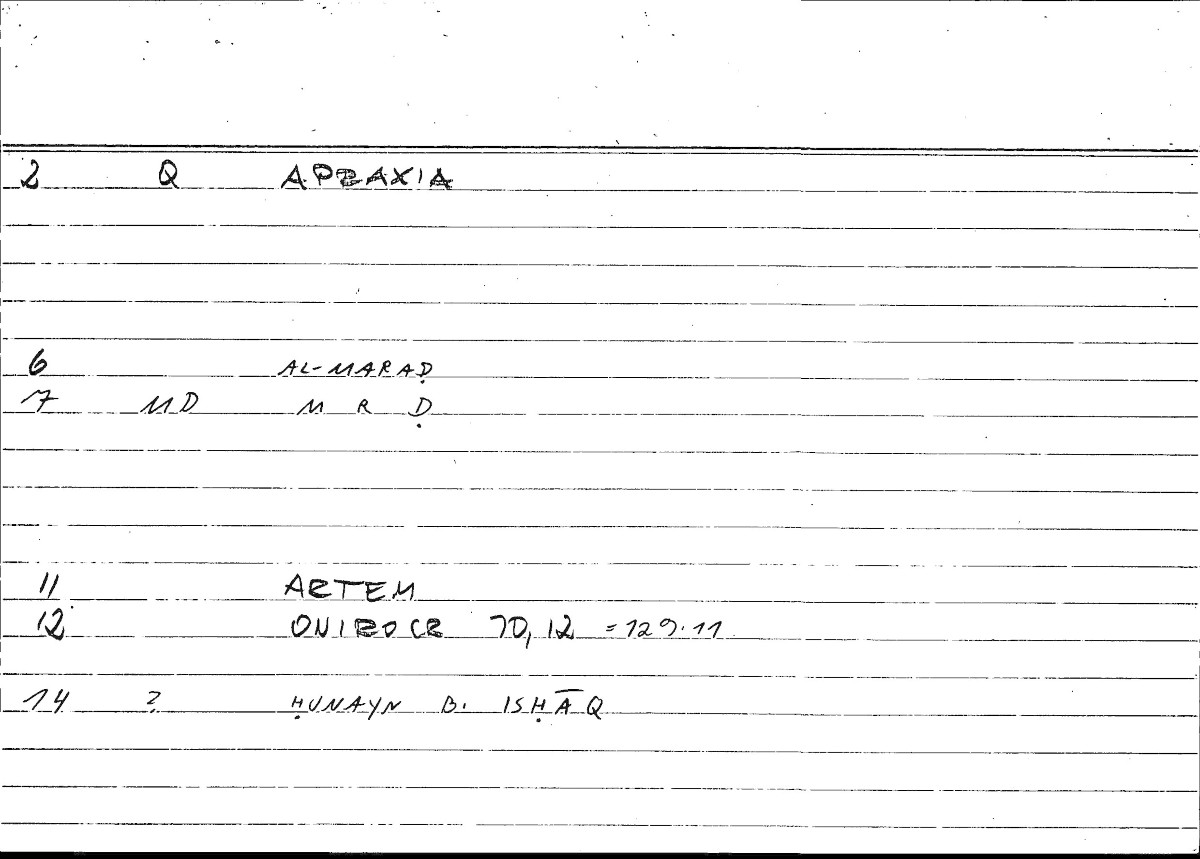 2 Q APRAXIA
6 AL-MARAḌ
7 MD M R Ḍ
11 ARTEM
12 ONIROCR 70,12 =129.11
14 ? ḤUNAYN B. ISḤĀQ